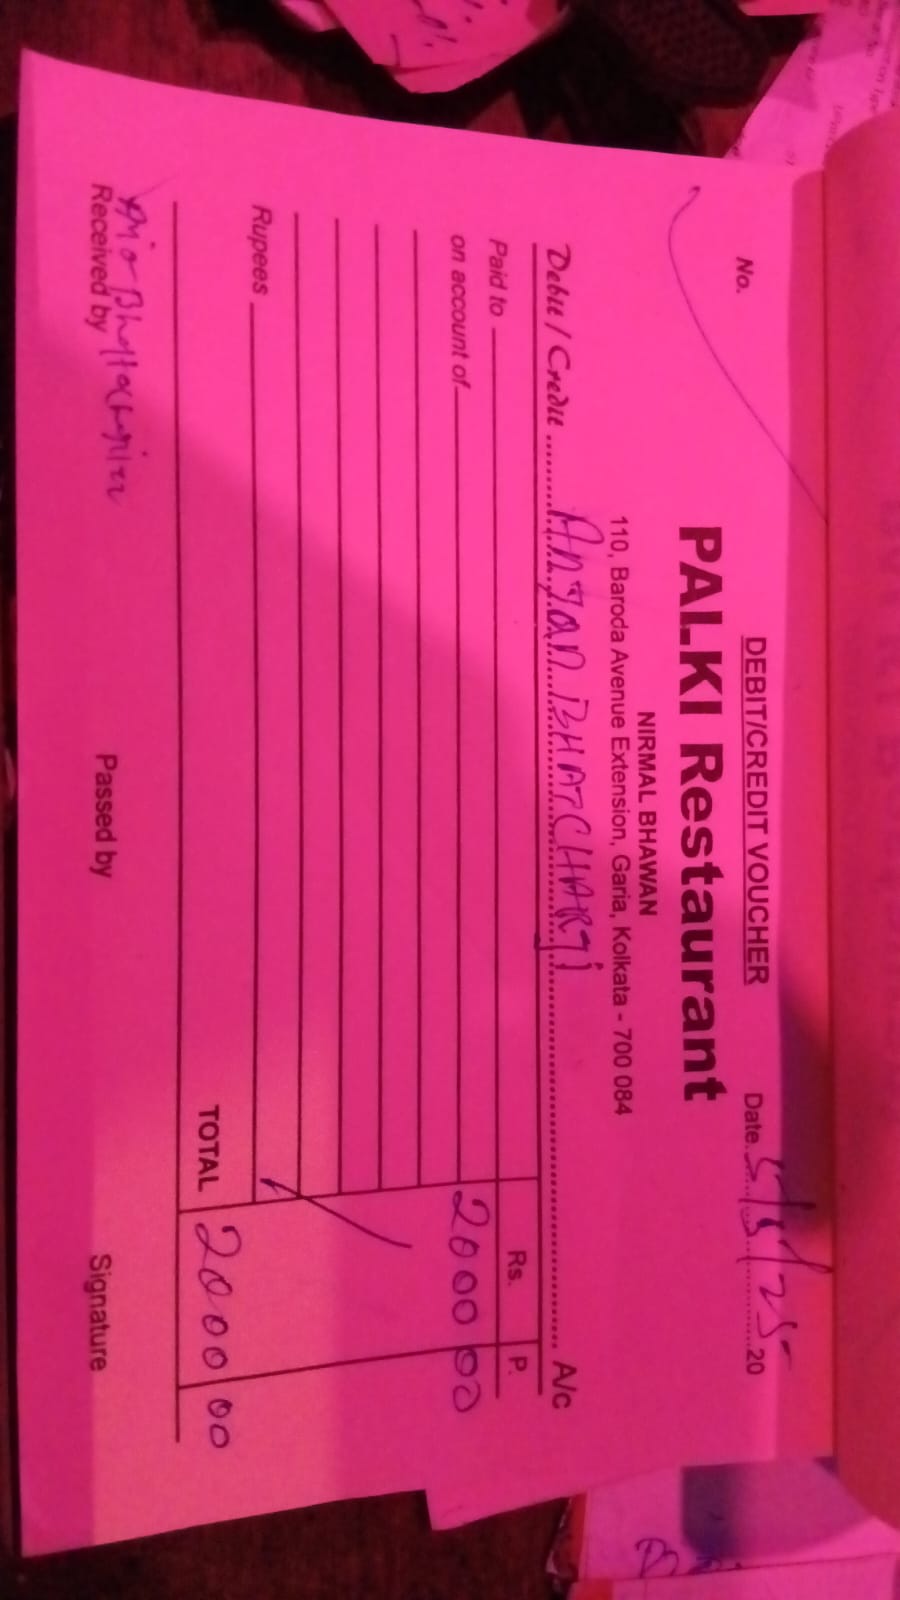 DEBIT/CREDIT VOUCHER
No.
Date 5/5/25 20
PALKI Restaurant
NIRMAL BHAWAN
110, Baroda Avenue Extension, Garia, Kolkata - 700 084
Debit / Credit ANJAN BHATCHARJi A/c
Paid to Rs. P.
on account of 2000 00
Rupees
TOTAL 2000 00
Received by Passed by Signature